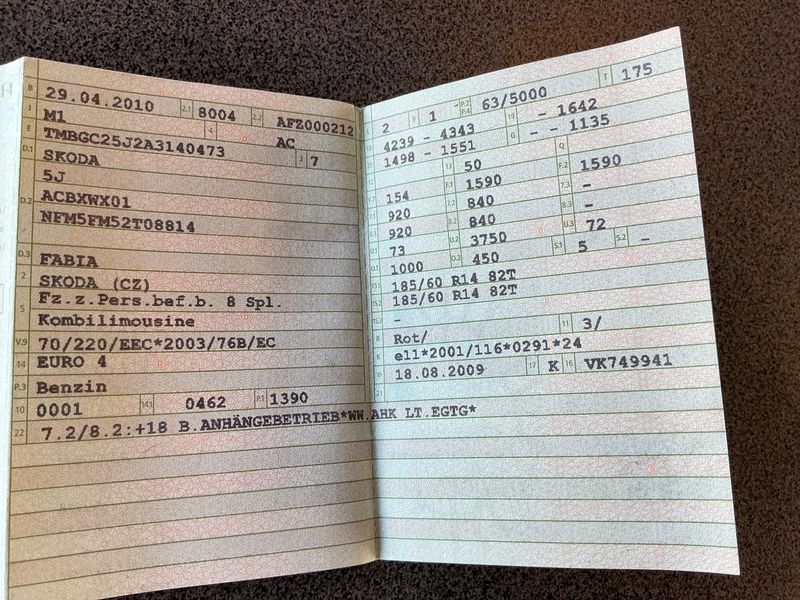 B 29.04.2010 2.1 8004 2.2 AFZ000212
J M1 4 AC
E TMBGC25J2A3140473 3 7
D.1 SKODA
5J
D.2 ACBXWX01
NFM5FM52T08814
D.3 FABIA
2 SKODA (CZ)
5 Fz.z.Pers.bef.b. 8 Spl.
Kombilimousine
V.9 70/220/EEC*2003/76B/EC
14 EURO 4
P.3 Benzin
10 0001 14.1 0462 P.1 1390
22 7.2/8.2:+18 B.ANHÄNGEBETRIEB*WW.AHK LT.EGTG*
L 2 9 1 P.2 P.4 63/5000 T 175
18 4239 - 4343 19 - 1642
20 1498 - 1551 G - - 1135
12 - 13 50 Q
V.7 154 F.1 1590 F.2 1590
7.1 920 7.2 840 7.3 -
8.1 920 8.2 840 8.3 -
U.1 73 U.2 3750 U.3 72
O.1 1000 O.2 450 S.1 5 S.2 -
15.1 185/60 R14 82T
15.2 185/60 R14 82T
15.3 -
R Rot/ 11 3/
K e11*2001/116*0291*24
6 18.08.2009 17 K 16 VK749941
21